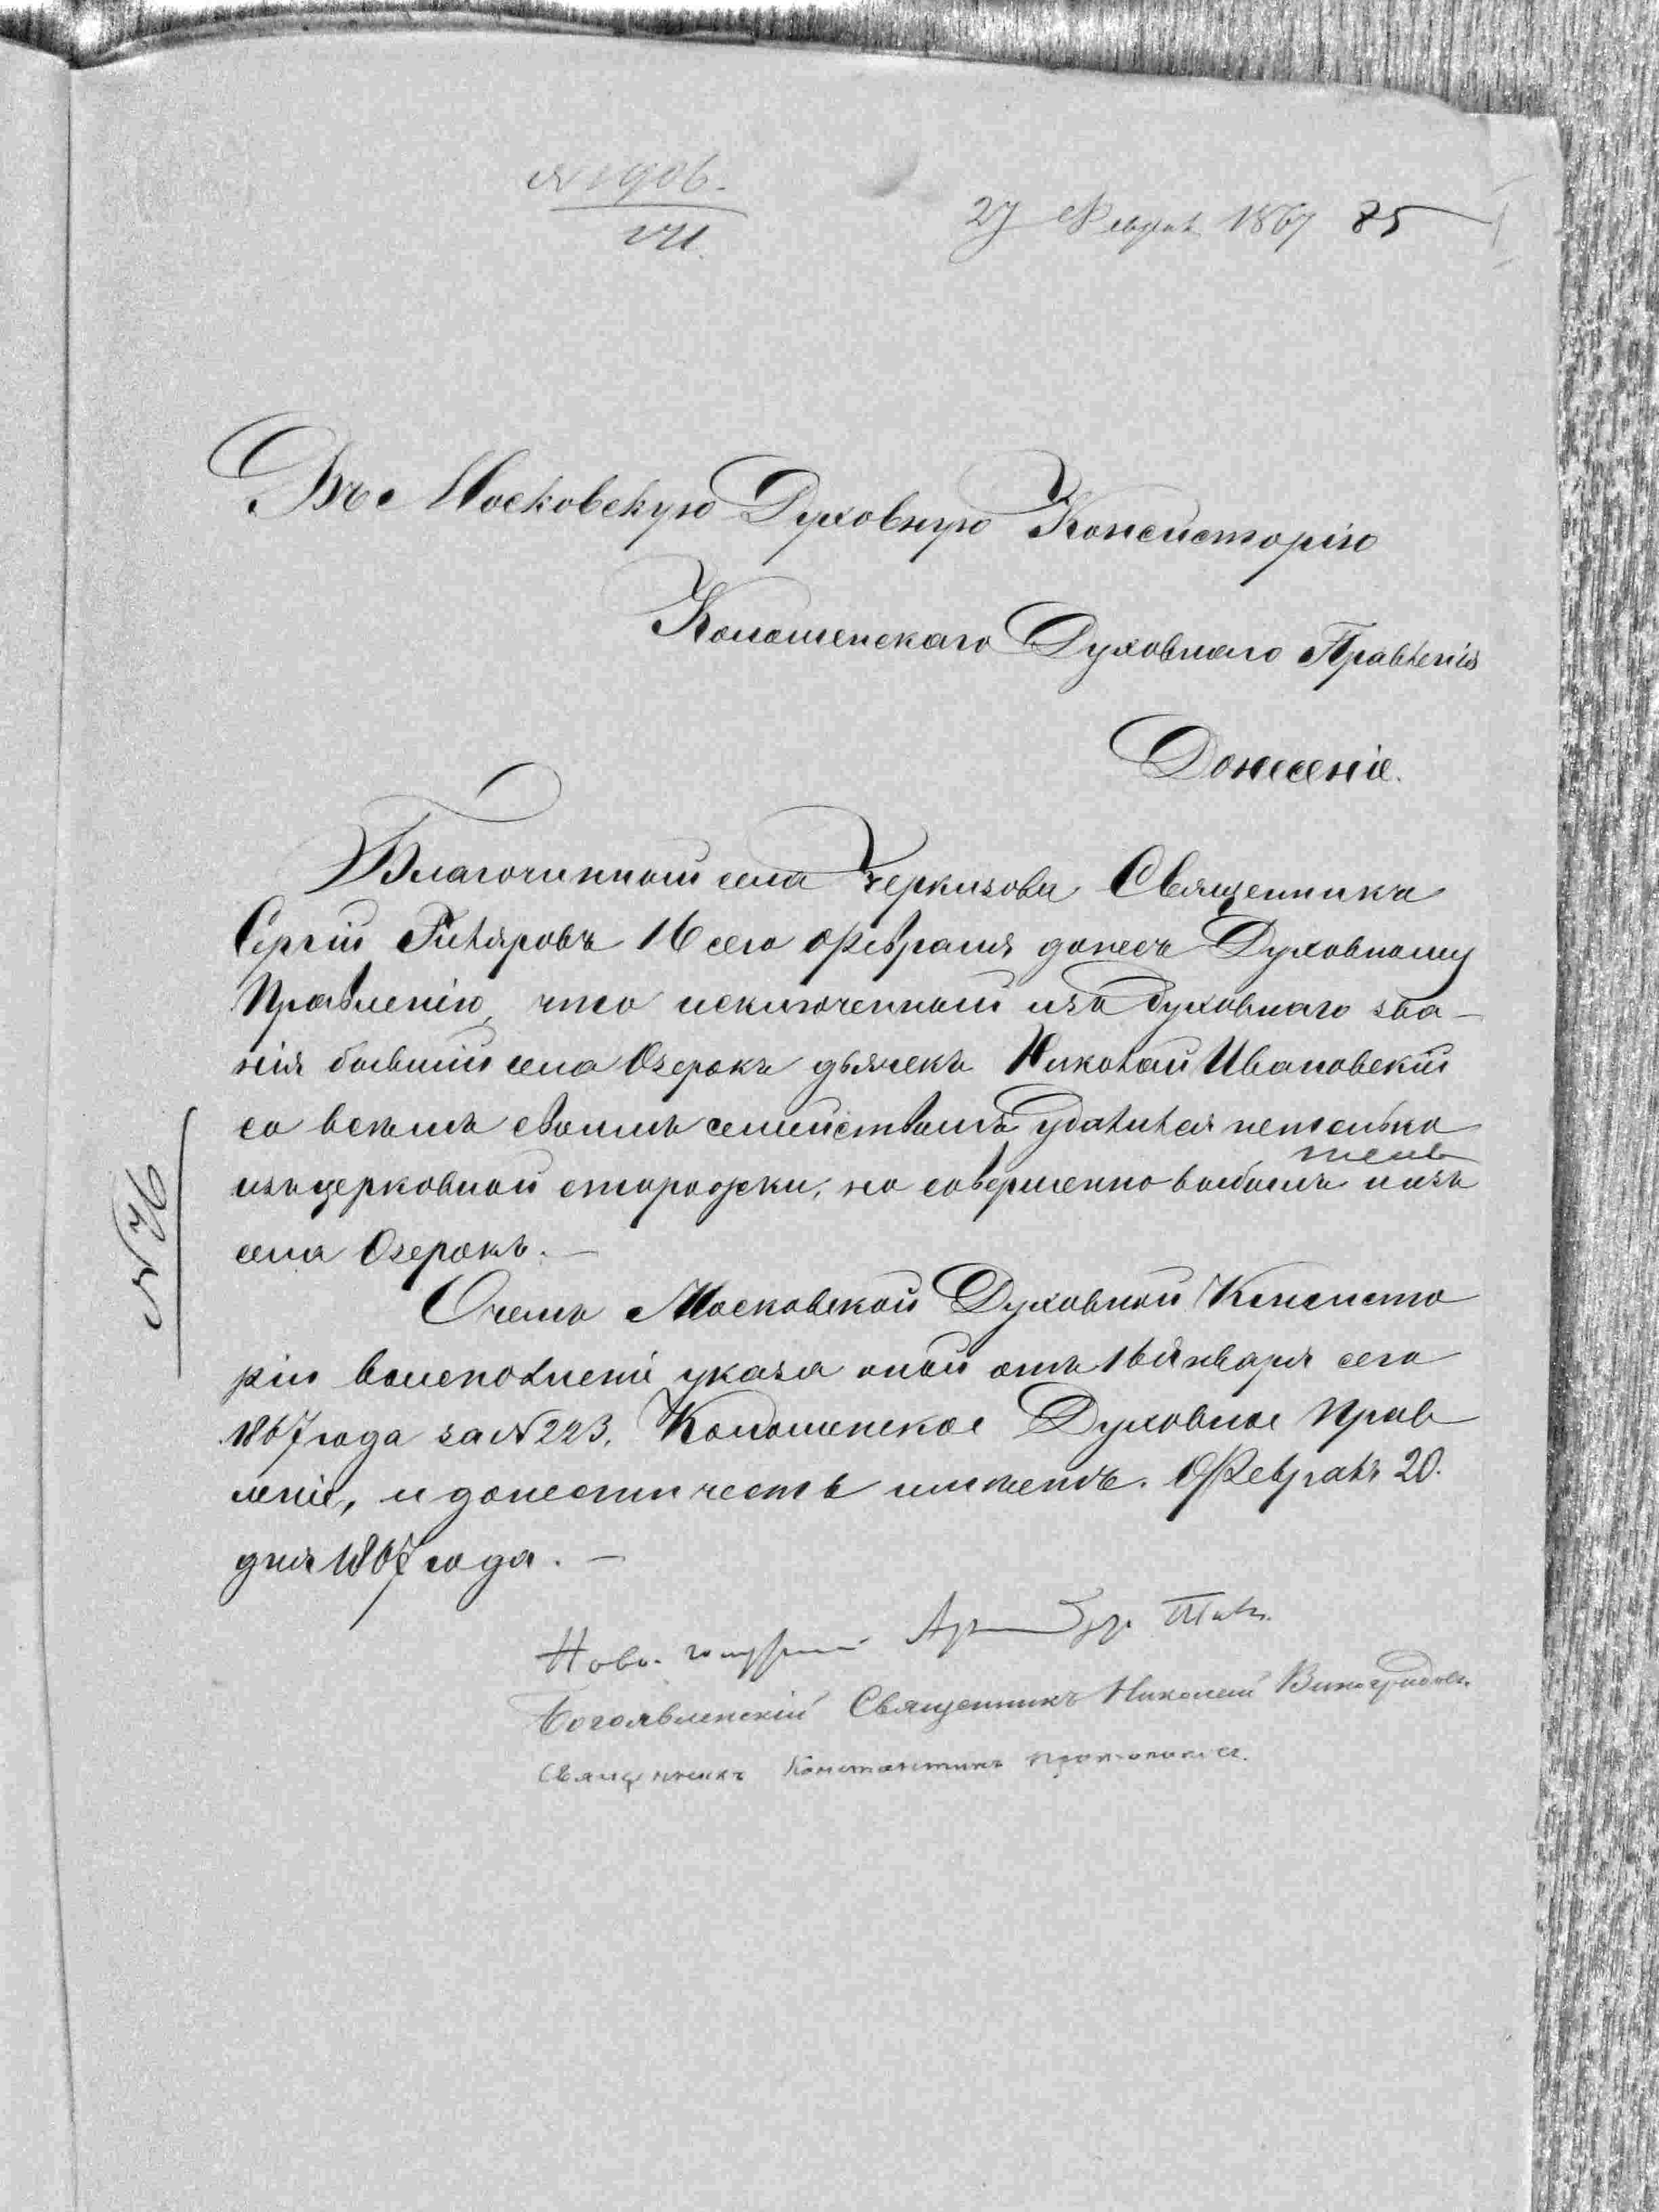 № 1906.
VII.
27 Февраля 1867 85
Въ Московскую Духовную Консисторію
Коломенскаго Духовнаго Правленія
Донесеніе.
Благочинный села Черкизова Священникъ
Сергій 16 сего Февраля донесъ Духовному
Правленію, что исключенный изъ духовнаго зва-
нія бывшій села Озерокъ дьячекъ Николай Ивановскій
со всемъ своимъ семействомъ удалился не только
изъ церковной сторожки, но совершенно выбылъ и изъ
села Озерокъ. —
О чемъ Московской Духовной Консисто
ріи во исполненіе указа оной отъ 16 Января сего
1867 года за № 223, Коломенское Духовное Прав
леніе, и донести честь имеетъ. Февраля 20.
дня 1867 года. —
№ 76
Богоявленскій Священникъ Николай Виноградовъ.
Священникъ Константинъ